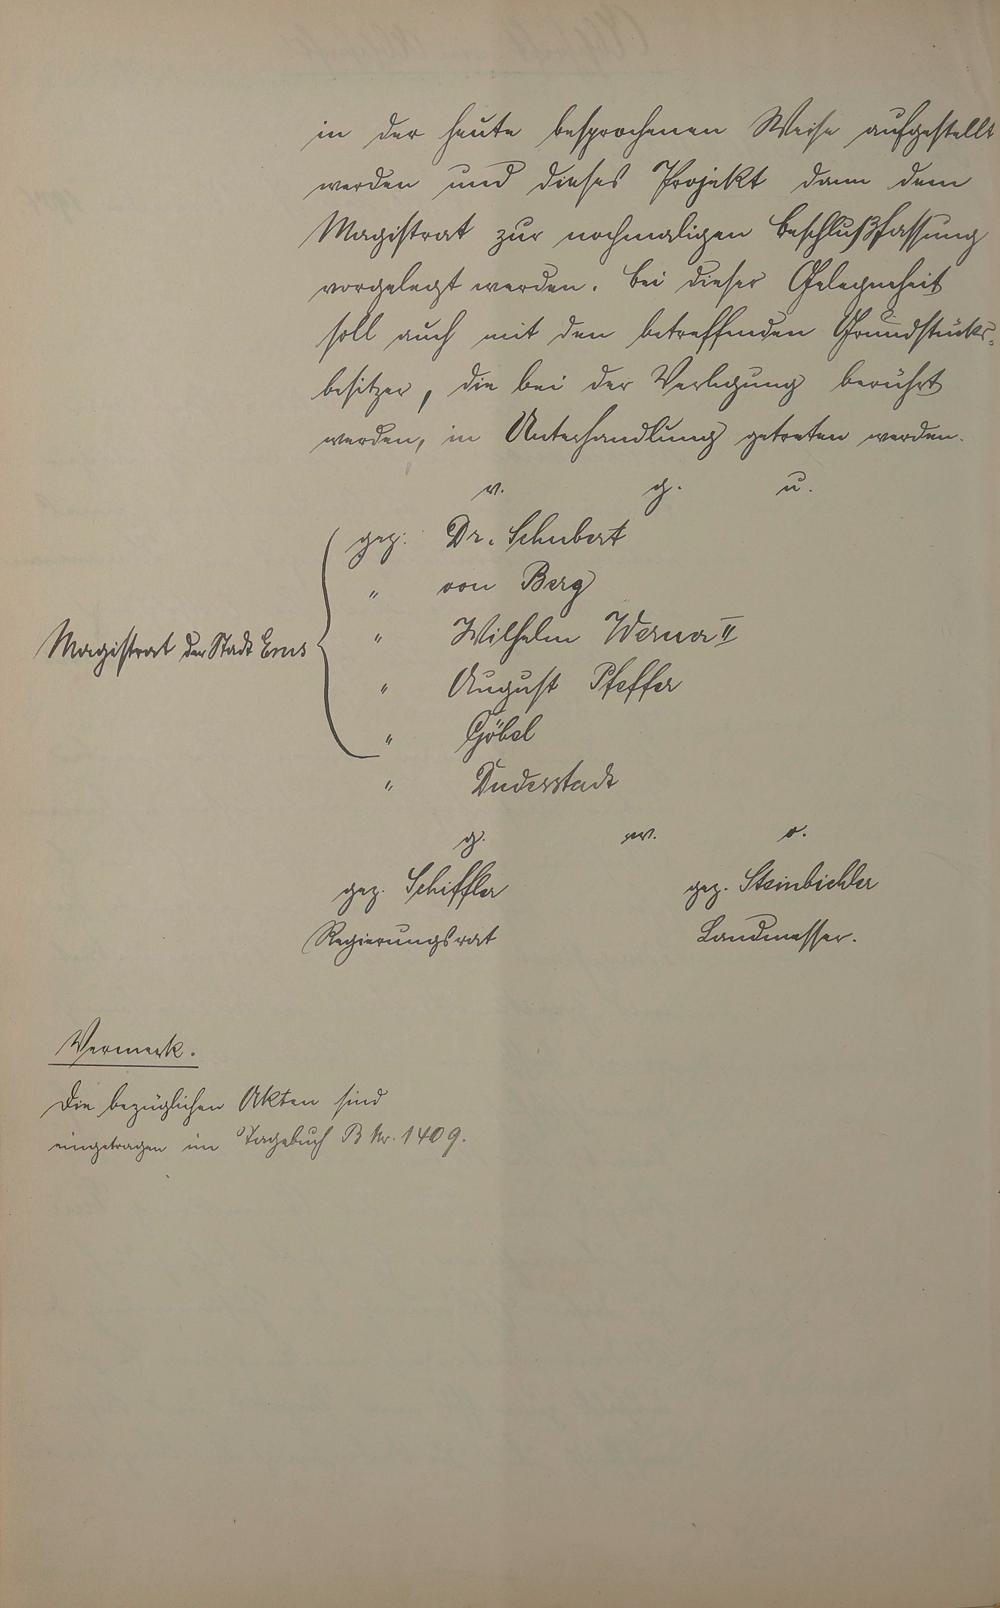 in der heute besprochenen Weise aufgestellt
werden und dieses Projekt dann dem
Magistrat zur nochmaligen Beschlußfassung
vorgelegt werden. Bei dieser Gelegenheit
soll auch mit den betreffenden Grundstücks-
besitzer, die bei der Verlegung berührt
werden, in Unterhandlung getreten werden.
v. g. u.
gez: Dr. Schubert
" von Berg
" Wilhelm II
Magistrat der Stadt Ems
" August Pfeffer
" Göbel
" Duderstadt
g. w. o.
gez. Schiffler gez. Steinbichler
Regierungsrat Landmesser.
Vermerk.
Die bezüglichen Akten sind
eingetragen im Tagebuch B Nr. 1409.